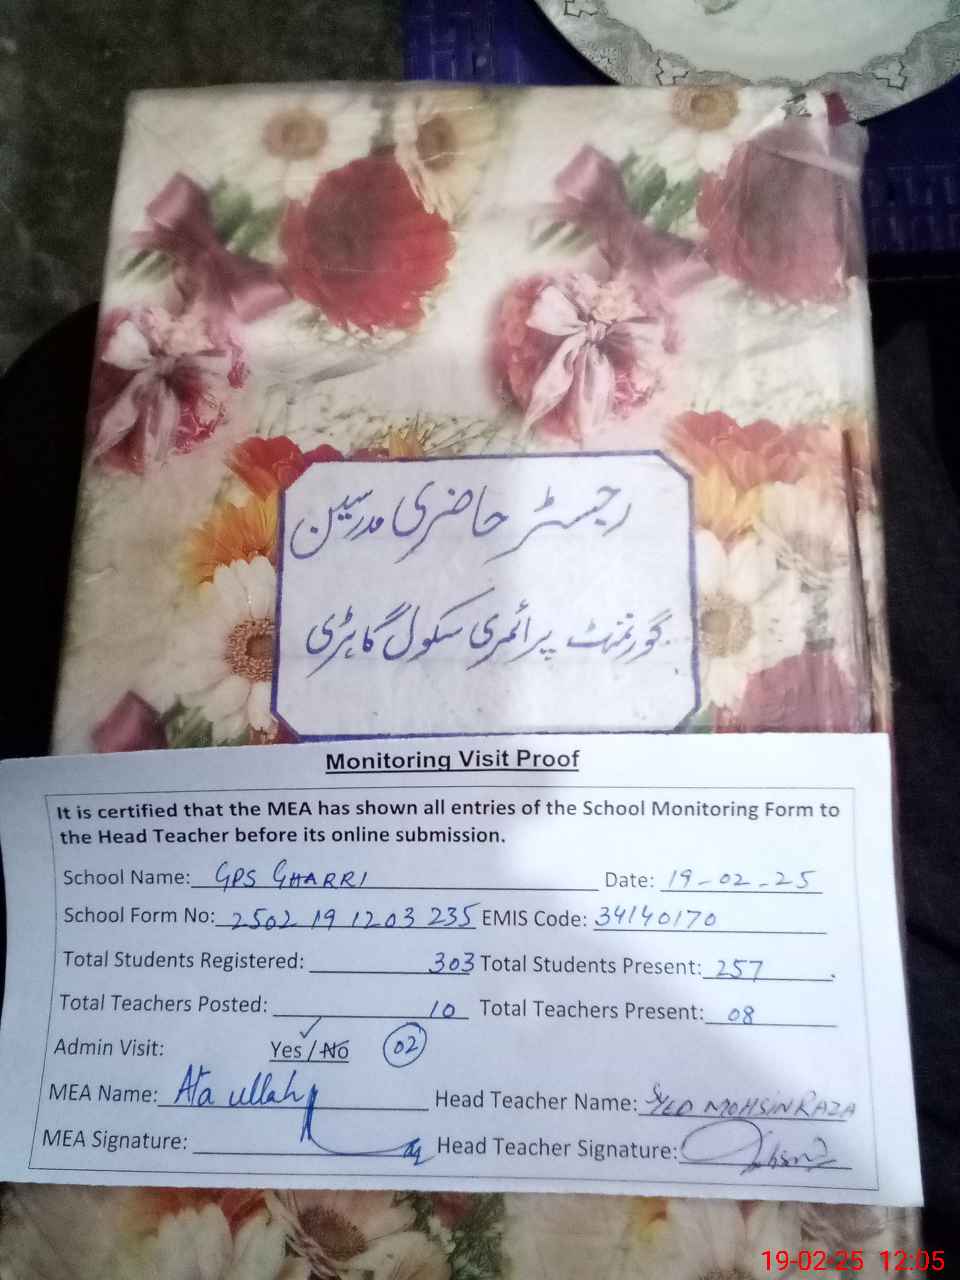 رجسٹر حاضری مدرسین
گورنمنٹ پرائمری سکول گاہڑی
Monitoring Visit Proof
It is certified that the MEA has shown all entries of the School Monitoring Form to
the Head Teacher before its online submission.
School Name: GPS GHARRI Date: 19-02-25
School Form No: 2502 19 1203 235 EMIS Code: 34140170
Total Students Registered: 303 Total Students Present: 257
Total Teachers Posted: 10 Total Teachers Present: 08
Admin Visit: Yes / No 02
MEA Name: Ata ullah Head Teacher Name: SYED MOHSIN RAZA
MEA Signature: Head Teacher Signature:
19-02-25 12:05